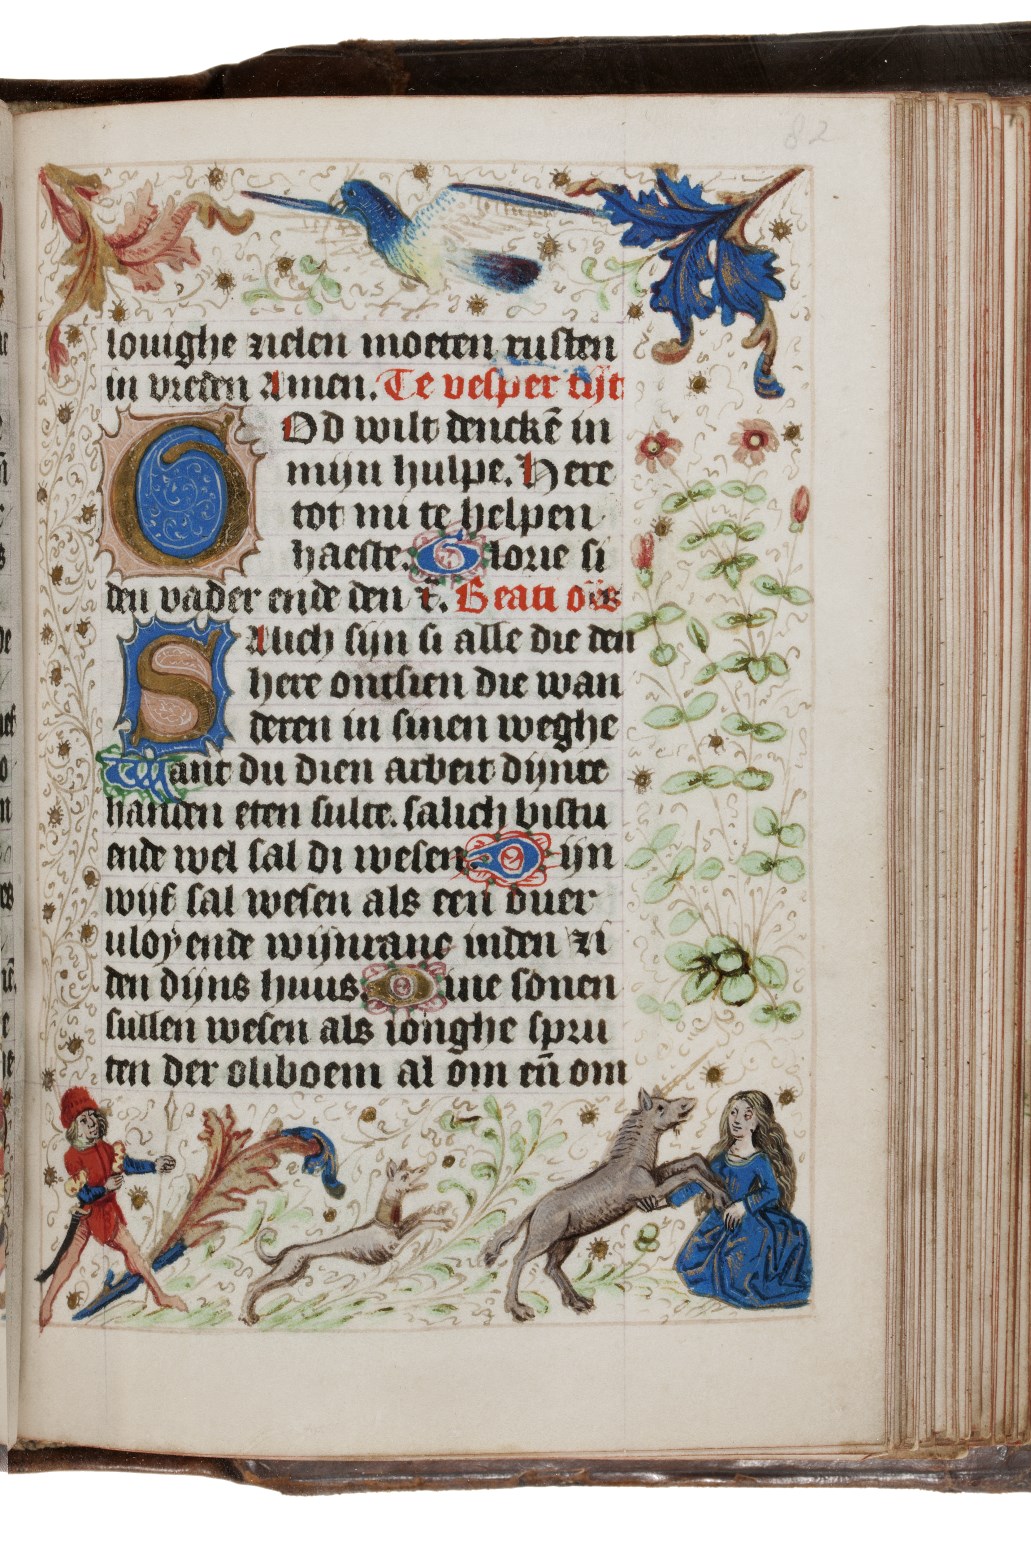 82
louighe zielen moeten rusten
in vreden Amen. Te vesper tijt
GOd wilt denckē in
mijn hulpe. Here
tot mi te helpen
haeste. Glorie si
den vader ende den
Salich sijn si alle die den
here ontsien die wan
deren in sinen weghe
Want du dien arbeit dijnre
handen eten sulte. salich bistu
ende wel sal di wesen. Dijn
wijf sal wesen als een ouer
uloyende wijnranc inden zi
den dijns huus Dine sonen
sullen wesen als ionghe spru
ten der oliboem al om eñ om